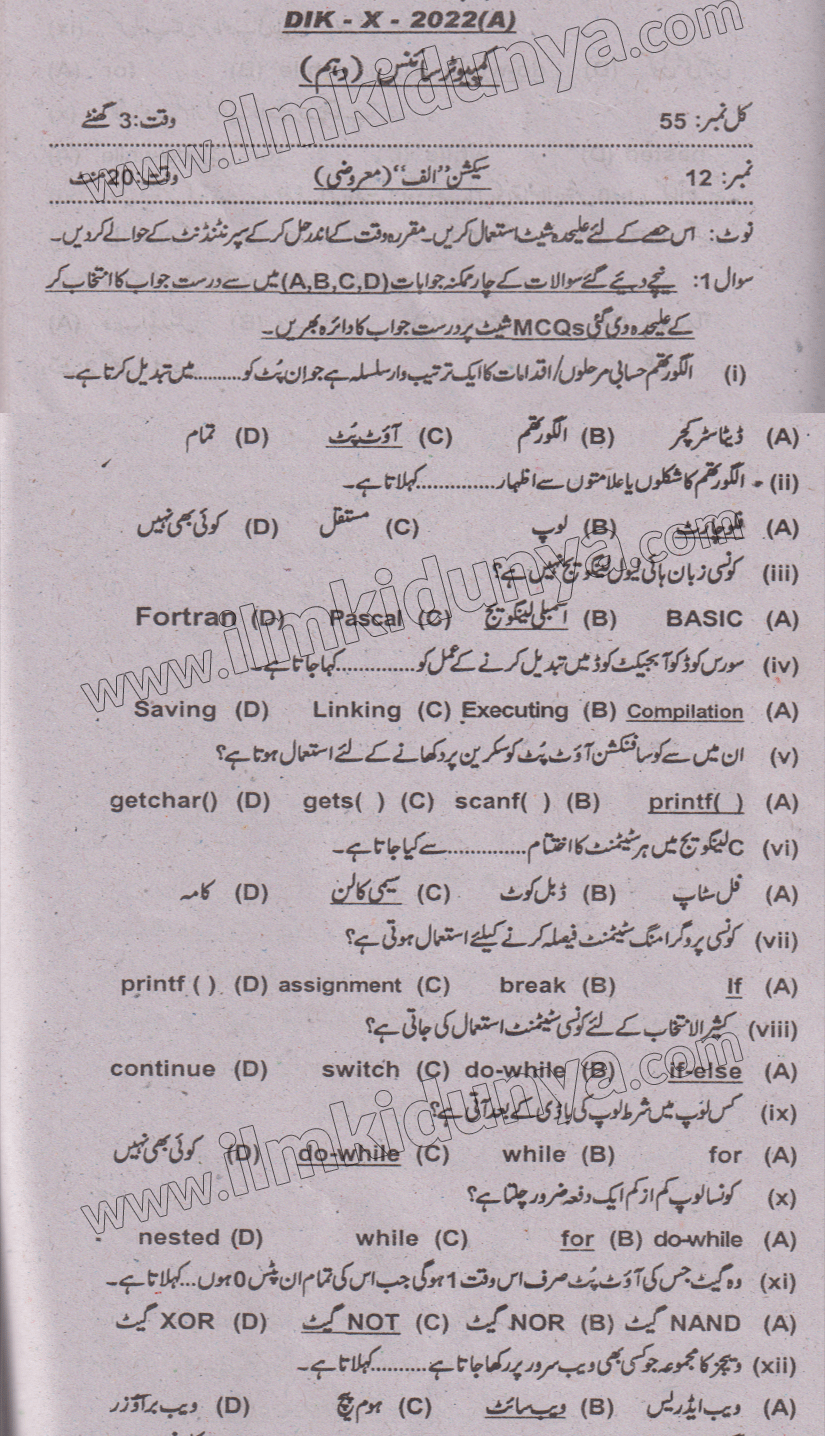 DIK - X - 2022(A)
کمپیوٹر سائنس (دہم)
کل نمبر: 55 وقت: 3 گھنٹے
نمبر: 12 سیکشن ”الف“ (معروضی) وقت: 20 منٹ
نوٹ: اس حصے کے لئے علیحدہ شیٹ استعمال کریں۔ مقررہ وقت کے اندر حل کر کے سپرنٹنڈنٹ کے حوالے کردیں۔
سوال 1: نیچے دیئے گئے سوالات کے چار ممکنہ جوابات (A,B,C,D) میں سے درست جواب کا انتخاب کر
کے علیحدہ دی گئی MCQs شیٹ پر درست جواب کا دائرہ بھریں۔
(i) الگورتھم حسابی مرحلوں/اقدامات کا ایک ترتیب وار سلسلہ ہے جو ان پُٹ کو.......... میں تبدیل کرتا ہے۔
(A) ڈیٹا سٹرکچر (B) الگورتھم (C) آؤٹ پُٹ (D) تمام
(ii) الگورتھم کا شکلوں یا علامتوں سے اظہار.............. کہلاتا ہے۔
(A) فلوچارٹ (B) لوپ (C) مستقل (D) کوئی بھی نہیں
(iii) کونسی زبان ہائی لیول لینگویج نہیں ہے؟
(A) BASIC (B) اسمبلی لینگویج (C) Pascal (D) Fortran
(iv) سورس کوڈ کو آبجیکٹ کوڈ میں تبدیل کرنے کے عمل کو.............. کہا جاتا ہے۔
(A) Compilation (B) Executing (C) Linking (D) Saving
(v) ان میں سے کونسا فنکشن آؤٹ پُٹ کو سکرین پر دکھانے کے لئے استعمال ہوتا ہے؟
(A) printf( ) (B) scanf( ) (C) gets( ) (D) getchar()
(vi) C لینگویج میں ہر سٹیٹمنٹ کا اختتام.............. سے کیا جاتا ہے۔
(A) فل سٹاپ (B) ڈبل کوٹ (C) سیمی کالن (D) کامہ
(vii) کونسی پروگرامنگ سٹیٹمنٹ فیصلہ کرنے کیلئے استعمال ہوتی ہے؟
(A) If (B) break (C) assignment (D) printf ( )
(viii) کثیر الانتخاب کے لئے کونسی سٹیٹمنٹ استعمال کی جاتی ہے؟
(A) if-else (B) do-while (C) switch (D) continue
(ix) کس لوپ میں شرط لوپ کی باڈی کے بعد آتی ہے؟
(A) for (B) while (C) do-while (D) کوئی بھی نہیں
(x) کونسا لوپ کم از کم ایک دفعہ ضرور چلتا ہے؟
(A) do-while (B) for (C) while (D) nested
(xi) وہ گیٹ جس کی آؤٹ پُٹ صرف اس وقت 1 ہوگی جب اس کی تمام ان پٹس 0 ہوں... کہلاتا ہے۔
(A) NAND گیٹ (B) NOR گیٹ (C) NOT گیٹ (D) XOR گیٹ
(xii) ویجز کا مجموعہ جو کسی بھی ویب سرور پر رکھا جاتا ہے.......... کہلاتا ہے۔
(A) ویب ایڈریس (B) ویب سائٹ (C) ہوم پیج (D) ویب براؤزر
www.ilmkidunya.com
www.ilmkidunya.com
www.ilmkidunya.com